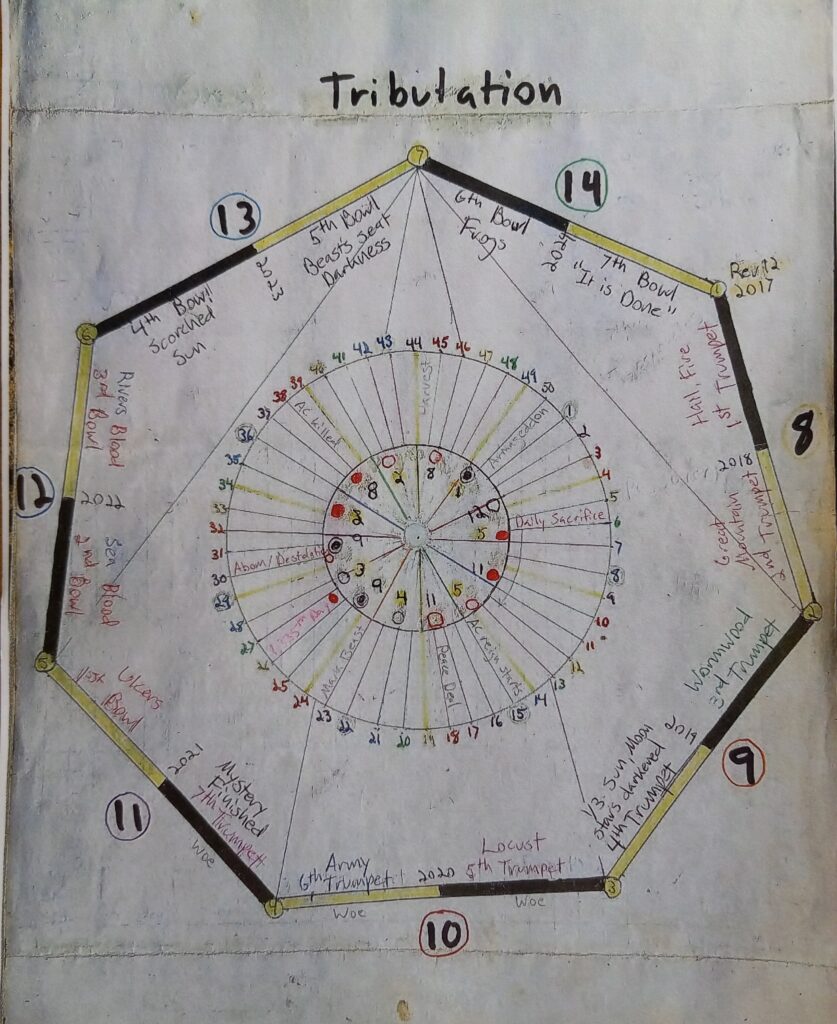 Tribulation
7
14
6th Bowl
Frogs
2024
7th Bowl
"It is Done"
1
Rev 12
2017
Hail, Fire
1st Trumpet
8
2018
Great
Mountain
2nd Trumpet
2
Wormwood
3rd Trumpet
9
2019
1/3 Sun, Moon
Stars darkened
4th Trumpet
3
Locust
5th Trumpet
Woe
10
2020
Army
6th Trumpet
Woe
4
Mystery
Finished
7th Trumpet
Woe
11
2021
Ulcers
1st Bowl
5
Sea Blood
2nd Bowl
12
Rivers Blood
3rd Bowl
6
4th Bowl
Scorched
Sun
13
2023
5th Bowl
Beasts Seat
Darkness
1
2
3
4
5
6
7
8
9
10
11
12
13
14
15
16
17
18
19
20
21
22
23
24
25
26
27
28
29
30
31
32
33
34
35
36
37
38
39
40
41
42
43
44
45
46
47
48
49
50
Harvest
Armageddon
Daily Sacrifice
AC reign starts
Peace Deal
Mark Beast
1,335th Day
Abom/Desolation
AC killed
8
1
12
5
11
5
11
4
9
3
9
2
8
2